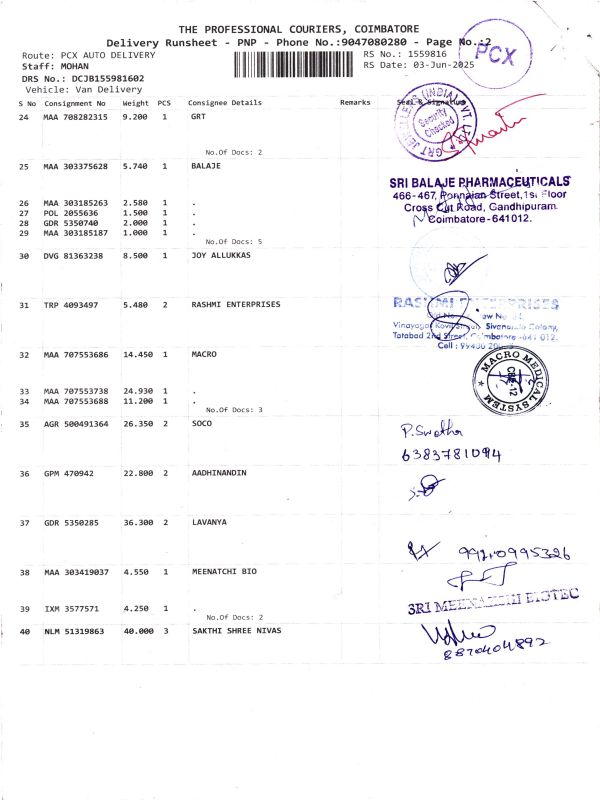 THE PROFESSIONAL COURIERS, COIMBATORE
Delivery Runsheet - PNP - Phone No.:9047080280 - Page No.:2
PCX
Route: PCX AUTO DELIVERY
RS No.: 1559816
Staff: MOHAN
RS Date: 03-Jun-2025
DRS No.: DCJB155981602
Vehicle: Van Delivery
S No Consignment No Weight PCS Consignee Details Remarks Seal & Signature
24 MAA 708282315 9.200 1 GRT
GRT JEWELLERS (INDIA) PVT. LTD.
Security Checked
No.Of Docs: 2
25 MAA 303375628 5.740 1 BALAJE
SRI BALAJE PHARMACEUTICALS
466-467, Ponnaian Street, 1st Floor
Cross Cut Road, Gandhipuram.
Coimbatore-641012.
26 MAA 303185263 2.580 1 .
27 POL 2055636 1.500 1 .
28 GDR 5350740 2.000 1 .
29 MAA 303185187 1.000 1 .
No.Of Docs: 5
30 DVG 81363238 8.500 1 JOY ALLUKKAS
31 TRP 4093497 5.480 2 RASHMI ENTERPRISES
RASHMI ENTERPRISES
Old No New No
Vinayagar Sivananda Colony,
Tatabad 2nd Street, Coimbatore-641 012.
Cell : 99430
32 MAA 707553686 14.450 1 MACRO
MACRO MEDICAL SYSTEM
CBE-12
33 MAA 707553738 24.930 1 .
34 MAA 707553688 11.200 1 .
No.Of Docs: 3
35 AGR 500491364 26.350 2 SOCO
P. Swetha
6383781094
36 GPM 470942 22.800 2 AADHINANDIN
37 GDR 5350285 36.300 2 LAVANYA
9921099532​6
38 MAA 303419037 4.550 1 MEENATCHI BIO
SRI MEENAKSHI BIOTEC
39 IXM 3577571 4.250 1 .
No.Of Docs: 2
40 NLM 51319863 40.000 3 SAKTHI SHREE NIVAS
8870404892